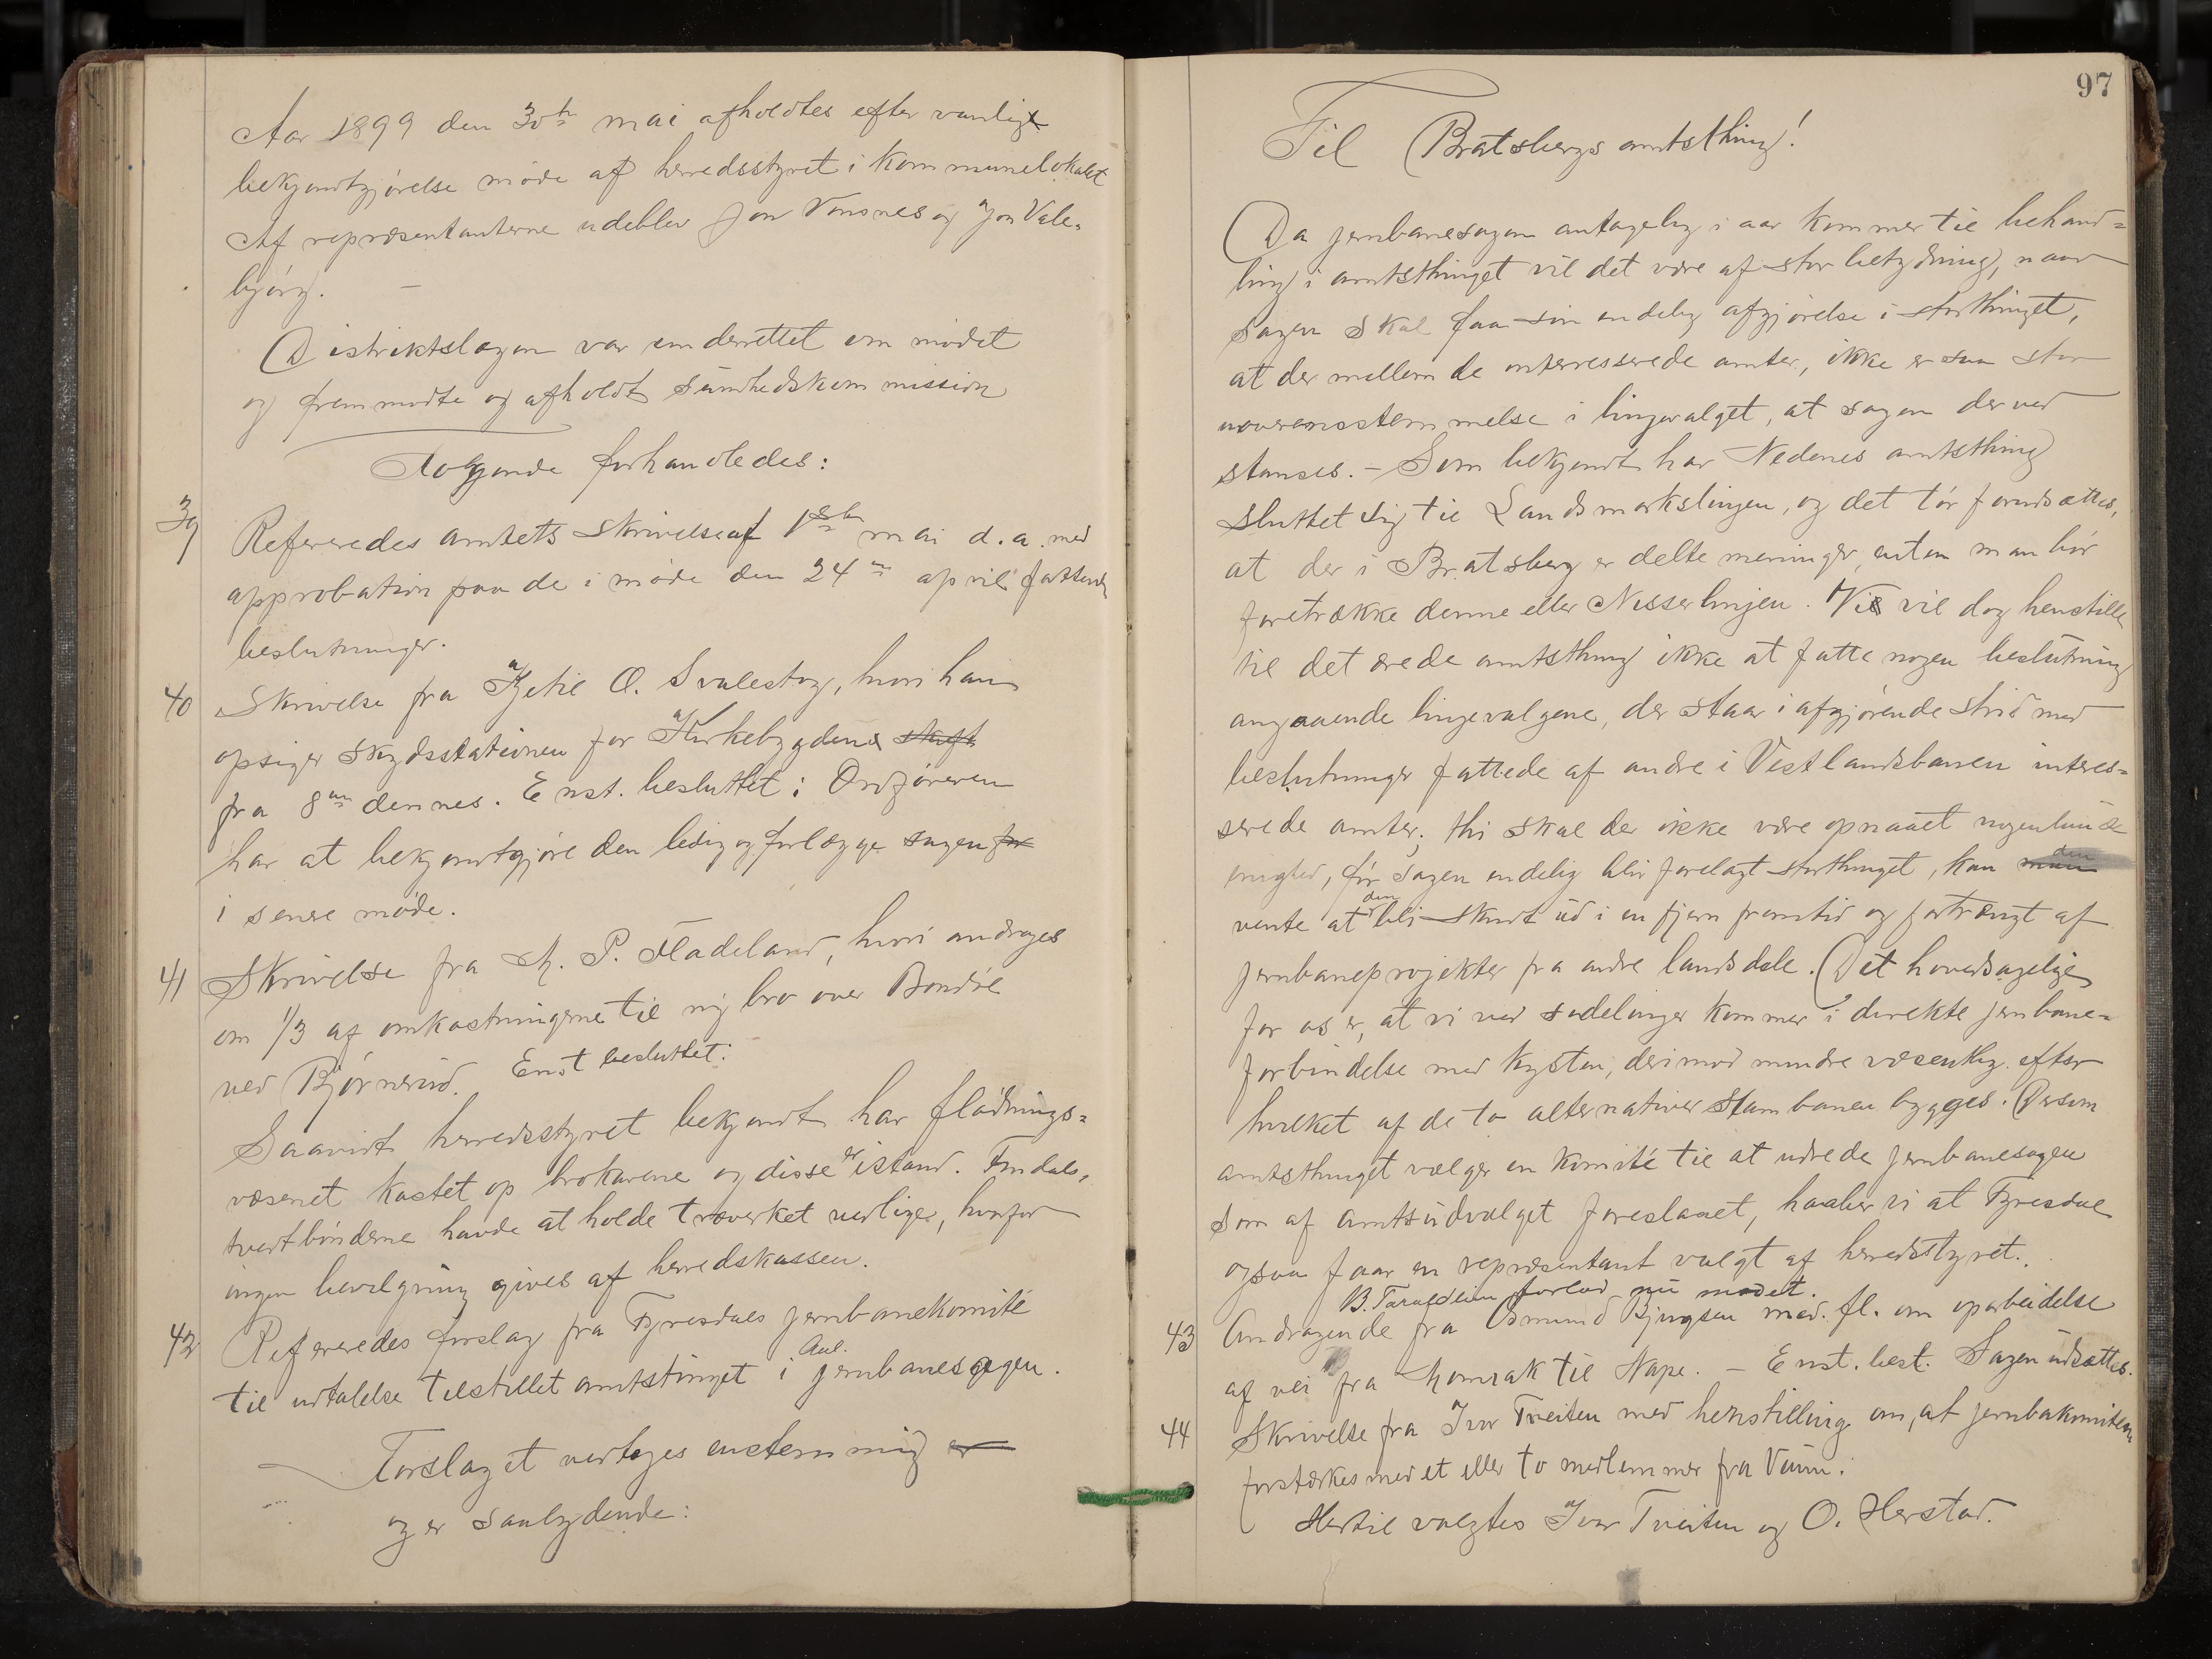 Aar 1899 den 30te mai afholdtes efter vanlig
bekjendtgjørelse møde af herredsstyret i kommunelokalet
Af repræsentanterne udeblev Jon Vonsnes og Jon Vale-
bjørg. –
Distriktslægen var underrettet om mødet
og fremmødte og afholdt sundhedskommission
Følgende forhandledes:
39 Refereredes amtets skrivelse af 1ste mai d.a. med
approbation paa de i møde den 24de april fattede
beslutninger.
40 Skrivelse fra Kjetil O. Svalestog, hvori han
opsiger skydsstationen for Kirkebygden
fra 8de dennes. Enst. besluttet: Ordføreren
har at bekjendtgjøre den ledig og forlægge sagen
i senere møde.
41 Skrivelse fra A. P. Fladeland, hvori andrages
om 1/3 af omkostningerne til ny bro over Bondøl
ved Bjørnerud. Enst besluttet:
Saavidt herredsstyret bekjendt har flødnings-
væsenet kostet op brokarene og disse er istand. Findals-
tveitbønderne havde at holde træverket vedlige, hvorfor
ingen bevilgning gives af herredskassen.
42 Refereredes forslag fra Tyresdals jernbanekomité
til udtalelse tilstillet amtstinget i Anl. jernbanesagen.
Forslaget vedtoges enstemmig
og er saalydende:
97
Til Bratsbergs amtsthing!
Da jernbanesagen antagelig i aar kommer til behand-
ling i amtsthinget vil det være af stor betydning, naar
sagen skal faa sin endelig afgjørelse i storthinget,
at der mellem de interresserede amter, ikke er saa stor
uoverensstemmelse i linjevalget, at sagen derved
stanses. – Som bekjendt har Nedenes amtsthing
sluttet sig til Landsmarkslinjen, og det tør forudsættes,
at der i Bratsberg er delte meninger, enten man bør
foretrække denne eller Nisserlinjen. Vi vil dog henstille
til det ærede amtsthing ikke at fatte nogen beslutning
angaaende linjevalgene, der staar i afgjørende strid med
beslutninger fattede af andre i Vestlandsbanen interes-
serede amter; thi skal der ikke være opnaaet nogenlunde
enighed, før sagen endelig blir forelagt storthinget, kan den
vente at den bli skudt ud i en fjern fremtid og fortrængt af
jernbaneprojekter fra andre landsdele. Det hovedsagelige
for os er, at vi ved sidelinjer kommer i direkte jernbane-
forbindelse med kysten, derimod mindre væsentlig efter
hvilket af de to alternativer stambanen bygges. Dersom
amtsthinget vælger en komité til at udrede jernbanesagen
som af amtsudvalget foreslaaet, haaber vi at Tyresdal
ogsaa faar en repræsentant valgt af herredsstyret.
B. Taraldlien forlod nu mødet.
43 Andragende fra Osmund Bjugsen med. fl. om oparbeidelse
af vei fra Homrak til Nape. – Enst. best. Sagen udsættes.
44 Skrivelse fra Ivar Tveiten med henstilling om, at jernbakomiteen
forstærkes med et eller to medlemmer fra Vinim.
Hertil valgtes Ivar Tveiten og O. Herstad.